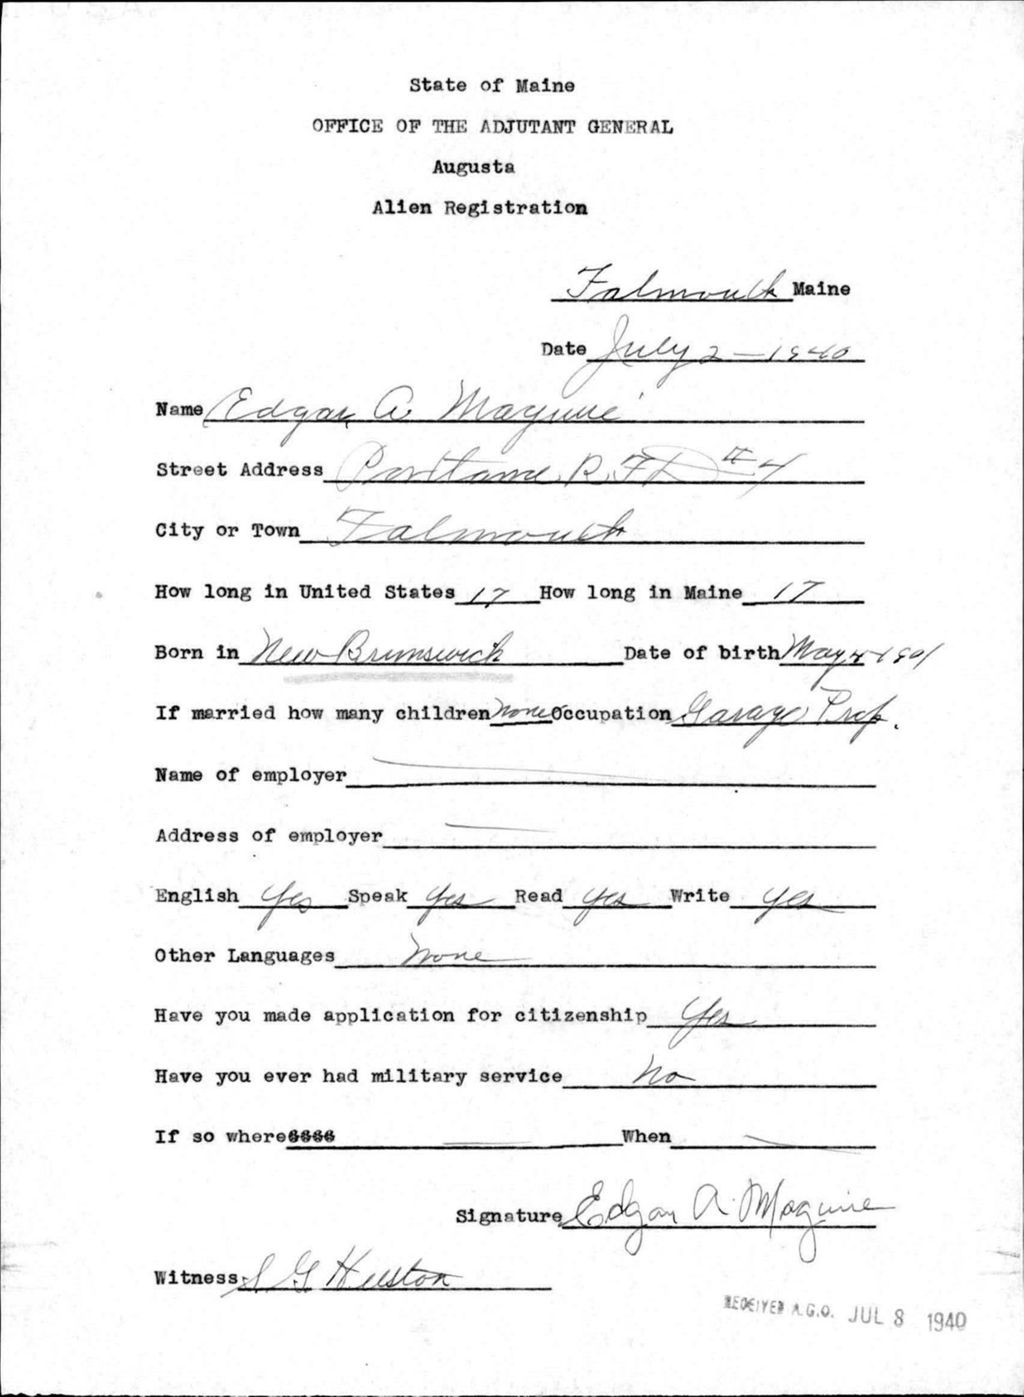 State of Maine
OFFICE OF THE ADJUTANT GENERAL
Augusta
Alien Registration
Falmouth Maine
Date July 2 – 1940
Name Edgar A Maguire
Street Address Portland R. F D #4
City or Town Falmouth
How long in United States 17 How long in Maine 17
Born in New Brunswick Date of birth May 4-1901
If married how many children none Occupation Garage Prop.
Name of employer
Address of employer
English Yes Speak Yes Read yes Write yes
Other Languages None
Have you made application for citizenship Yes
Have you ever had military service No
If so where When
Signature Edgar A. Maguire
Witness S G Huston
RECEIVED A.G.O. JUL 8 1940